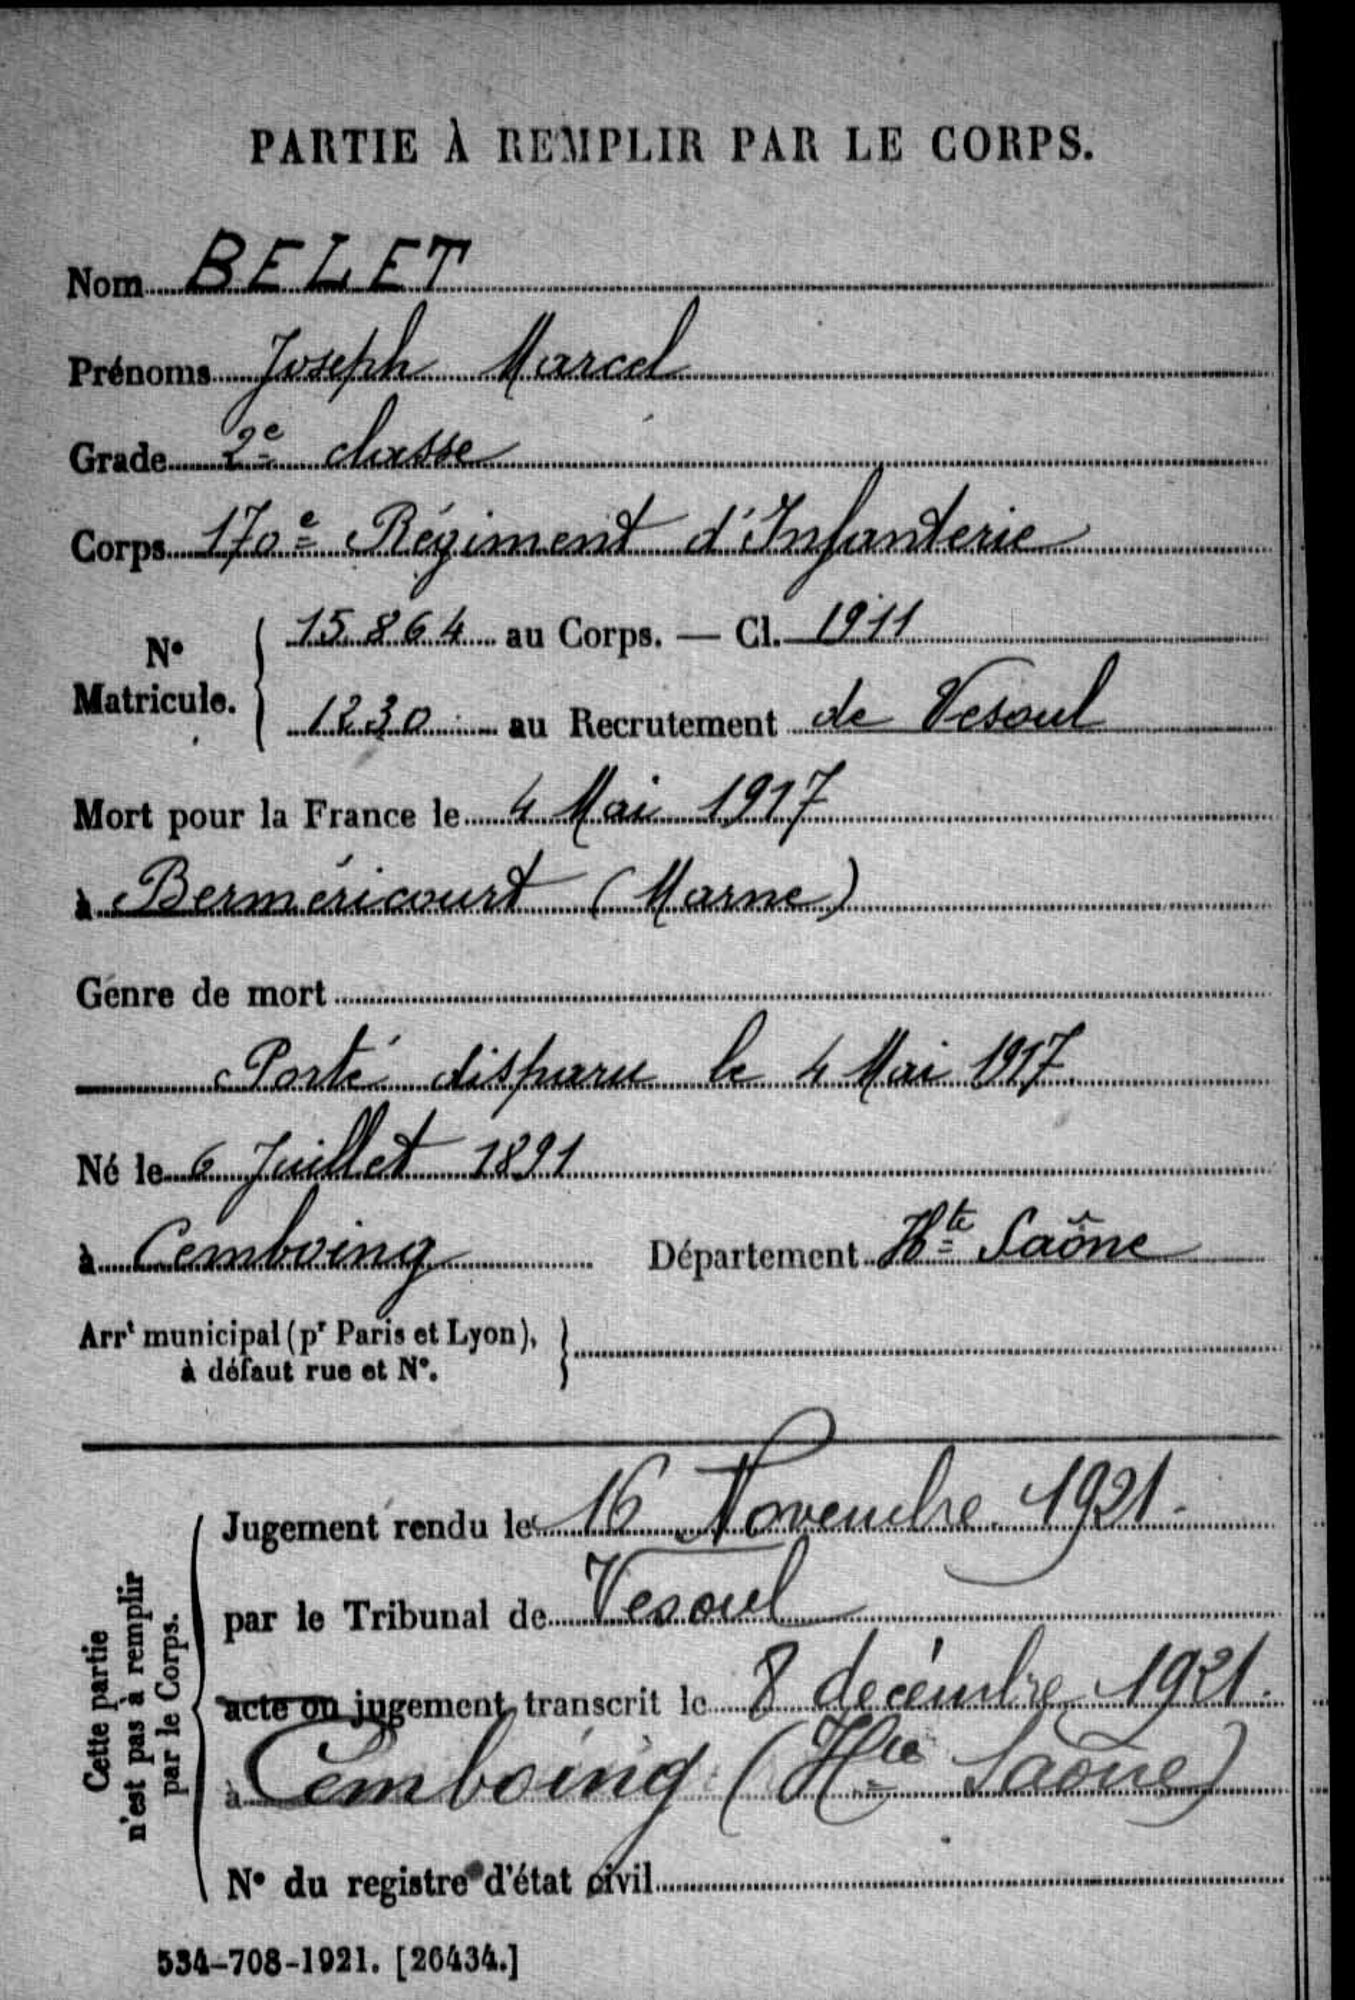 PARTIE À REMPLIR PAR LE CORPS.
Nom BELET
Prénoms Joseph Marcel
Grade 2e classe
Corps 170e Régiment d'Infanterie
No Matricule. { 15864 au Corps. — Cl. 1911
1230 au Recrutement de Vesoul
Mort pour la France le 4 Mai 1917
à Berméricourt (Marne)
Genre de mort
Porté disparu le 4 Mai 1917
Né le 6 Juillet 1891
à Cemboing Département Hte Saône
Arrt municipal (pr Paris et Lyon), }
à défaut rue et No.
Cette partie
n'est pas à remplir
par le Corps.
Jugement rendu le 16 Novembre 1921.
par le Tribunal de Vesoul
acte ou jugement transcrit le 8 décembre 1921.
à Cemboing (Hte Saône)
No du registre d'état civil
534-708-1921. [26434.]